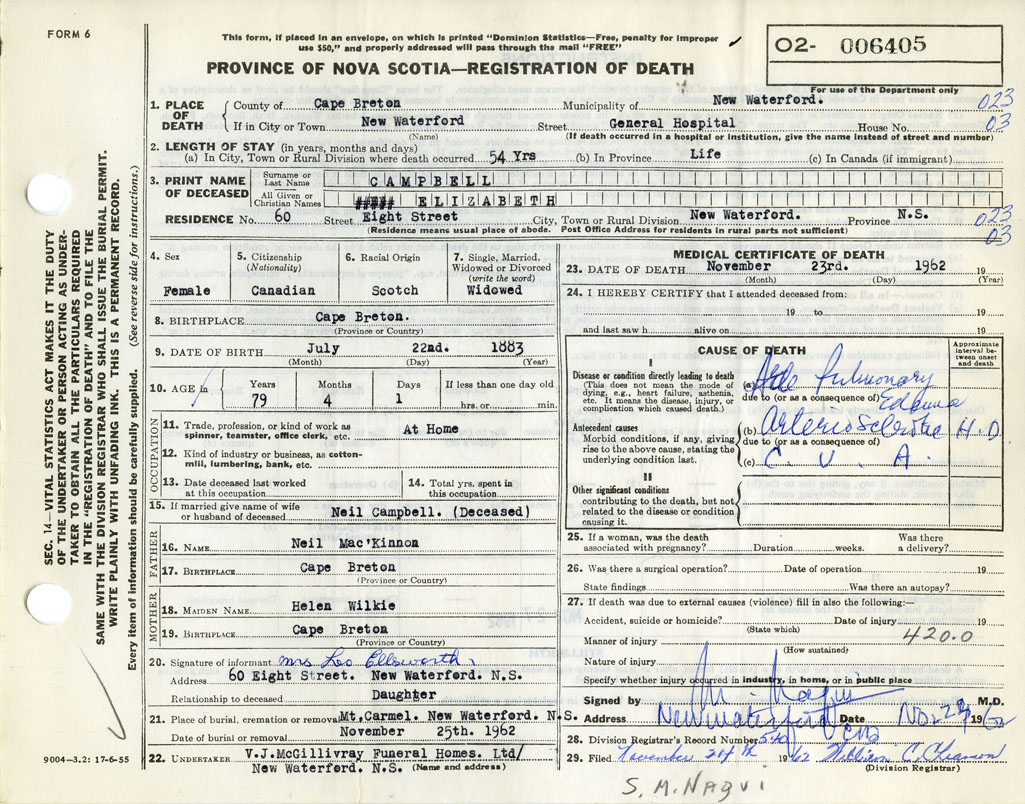 FORM 6
This form, if placed in an envelope, on which is printed "Dominion Statistics—Free, penalty for improper
use $50," and properly addressed will pass through the mail "FREE"
PROVINCE OF NOVA SCOTIA—REGISTRATION OF DEATH
02- 006405
For use of the Department only
SEC. 14—VITAL STATISTICS ACT MAKES IT THE DUTY
OF THE UNDERTAKER OR PERSON ACTING AS UNDER-
TAKER TO OBTAIN ALL THE PARTICULARS REQUIRED
IN THE "REGISTRATION OF DEATH" AND TO FILE THE
SAME WITH THE DIVISION REGISTRAR WHO SHALL ISSUE THE BURIAL PERMIT.
WRITE PLAINLY WITH UNFADING INK. THIS IS A PERMANENT RECORD.
Every item of information should be carefully supplied. (See reverse side for instructions.)
1. PLACE OF DEATH County of Cape Breton Municipality of New Waterford. 023
If in City or Town New Waterford Street General Hospital House No. 03
(Name) (If death occurred in a hospital or institution, give the name instead of street and number)
2. LENGTH OF STAY (in years, months and days)
(a) In City, Town or Rural Division where death occurred 54 Yrs (b) In Province Life (c) In Canada (if immigrant)
3. PRINT NAME OF DECEASED Surname or Last Name CAMPBELL
All Given or Christian Names ELIZABETH
RESIDENCE No. 60 Street Eight Street City, Town or Rural Division New Waterford. Province N.S. 023
(Residence means usual place of abode. Post Office Address for residents in rural parts not sufficient) 03
4. Sex Female
5. Citizenship (Nationality) Canadian
6. Racial Origin Scotch
7. Single, Married, Widowed or Divorced (write the word) Widowed
8. BIRTHPLACE Cape Breton.
(Province or Country)
9. DATE OF BIRTH July 22nd. 1883
(Month) (Day) (Year)
10. AGE in Years 79 Months 4 Days 1 If less than one day old hrs. or min.
OCCUPATION
11. Trade, profession, or kind of work as spinner, teamster, office clerk, etc. At Home
12. Kind of industry or business, as cotton-mill, lumbering, bank, etc.
13. Date deceased last worked at this occupation
14. Total yrs. spent in this occupation
15. If married give name of wife or husband of deceased Neil Campbell. (Deceased)
FATHER
16. NAME Neil Mac'Kinnon
17. BIRTHPLACE Cape Breton
(Province or Country)
MOTHER
18. MAIDEN NAME Helen Wilkie
19. BIRTHPLACE Cape Breton
(Province or Country)
20. Signature of informant Mrs Leo Ellsworth
Address 60 Eight Street. New Waterford. N.S.
Relationship to deceased Daughter
21. Place of burial, cremation or removal Mt,Carmel. New Waterford. N.S.
Date of burial or removal November 25th. 1962
22. UNDERTAKER V.J.McGillivray Funeral Homes. Ltd/
New Waterford. N.S. (Name and address)
9004-3.2: 17-6-55
MEDICAL CERTIFICATE OF DEATH
23. DATE OF DEATH November 23rd. 1962 19
(Month) (Day) (Year)
24. I HEREBY CERTIFY that I attended deceased from:
19 to 19
and last saw h alive on 19
CAUSE OF DEATH
Approximate interval between onset and death
I
Disease or condition directly leading to death
(This does not mean the mode of dying, e.g., heart failure, asthenia, etc. It means the disease, injury, or complication which caused death.)
(a) Pulmonary
due to (or as a consequence of) Edema
Antecedent causes
Morbid conditions, if any, giving rise to the above cause, stating the underlying condition last.
(b) Arteriosclerotic H.D.
due to (or as a consequence of)
(c) C. V. A.
II
Other significant conditions
contributing to the death, but not related to the disease or condition causing it.
25. If a woman, was the death associated with pregnancy? Duration weeks. Was there a delivery?
26. Was there a surgical operation? Date of operation 19
State findings Was there an autopsy?
27. If death was due to external causes (violence) fill in also the following:—
Accident, suicide or homicide? Date of injury 19
(State which) 420.0
Manner of injury
(How sustained)
Nature of injury
Specify whether injury occurred in industry, in home, or in public place
Signed by M. Naqui M.D.
Address New Waterford Date Nov 23 1962
28. Division Registrar's Record Number
29. Filed November 24th 1962 William C. Cheamon
(Division Registrar)
S. M. NAQUI